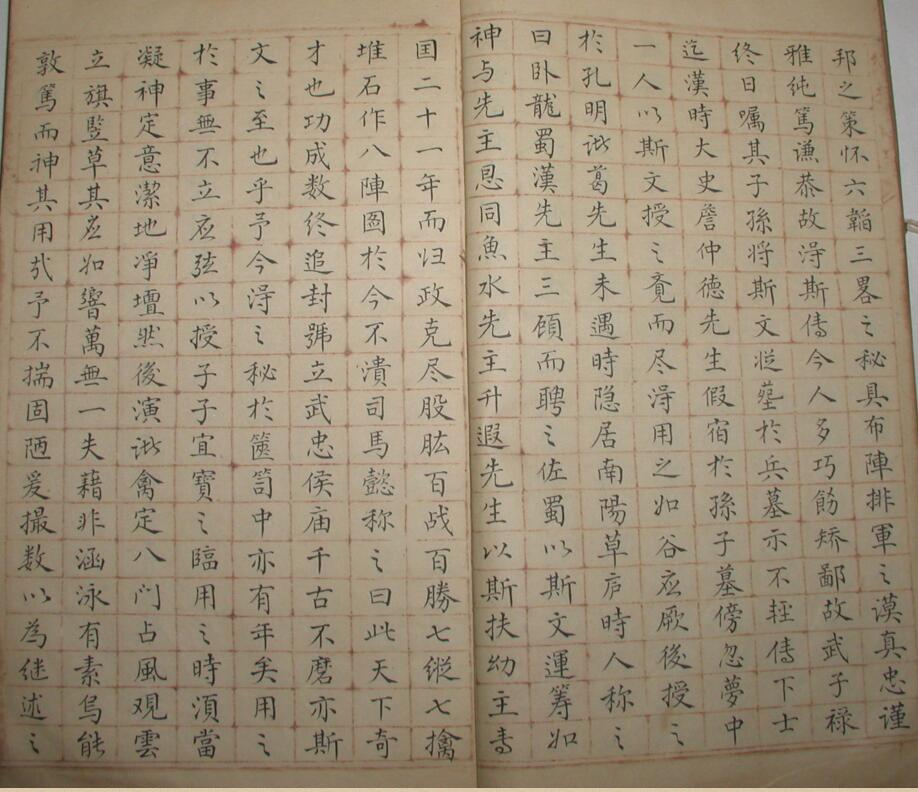 邦之策怀六韜三畧之秘具布陣排軍之謨真忠谨
雅纯篤谦恭故淂斯傳今人多巧飭矯鄙故武子禄
终日嘱其子孫将斯文從墓於兵墓示不轻傳下士
迄漢時大史詹仲德先生假宿於孫子墓傍忽夢中
一人以斯文授之竟而尽淂用之如谷应厥後授之
於孔明诸葛先生未遇時隐居南陽草庐時人称之
曰卧龍蜀漢先主三顾而聘之佐蜀以斯文運筹如
神与先主恩同魚水先主升遐先生以斯扶幼主專
囯二十一年而归政克尽股肱百战百勝七縱七擒
堆石作八陣圖於今不潰司馬懿称之曰此天下奇
才也功成数终追封號立武忠侯庙千古不磨亦斯
文之至也乎予今淂之秘於箧笥中亦有年矣用之
於事無不立应弦以授子子宜寶之臨用之時湏當
凝神定意潔地净壇然後演诸禽定八门占風观雲
立旗竖草其应如響萬無一失藉非涵泳有素烏能
敦篤而神其用哉予不揣固陋爰撮数以為继述之